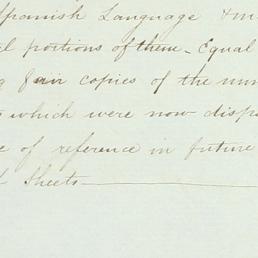 Spanish Language &
al portions of them - Equal
fair copies of the
which were now disp
e of reference in future
Sheets